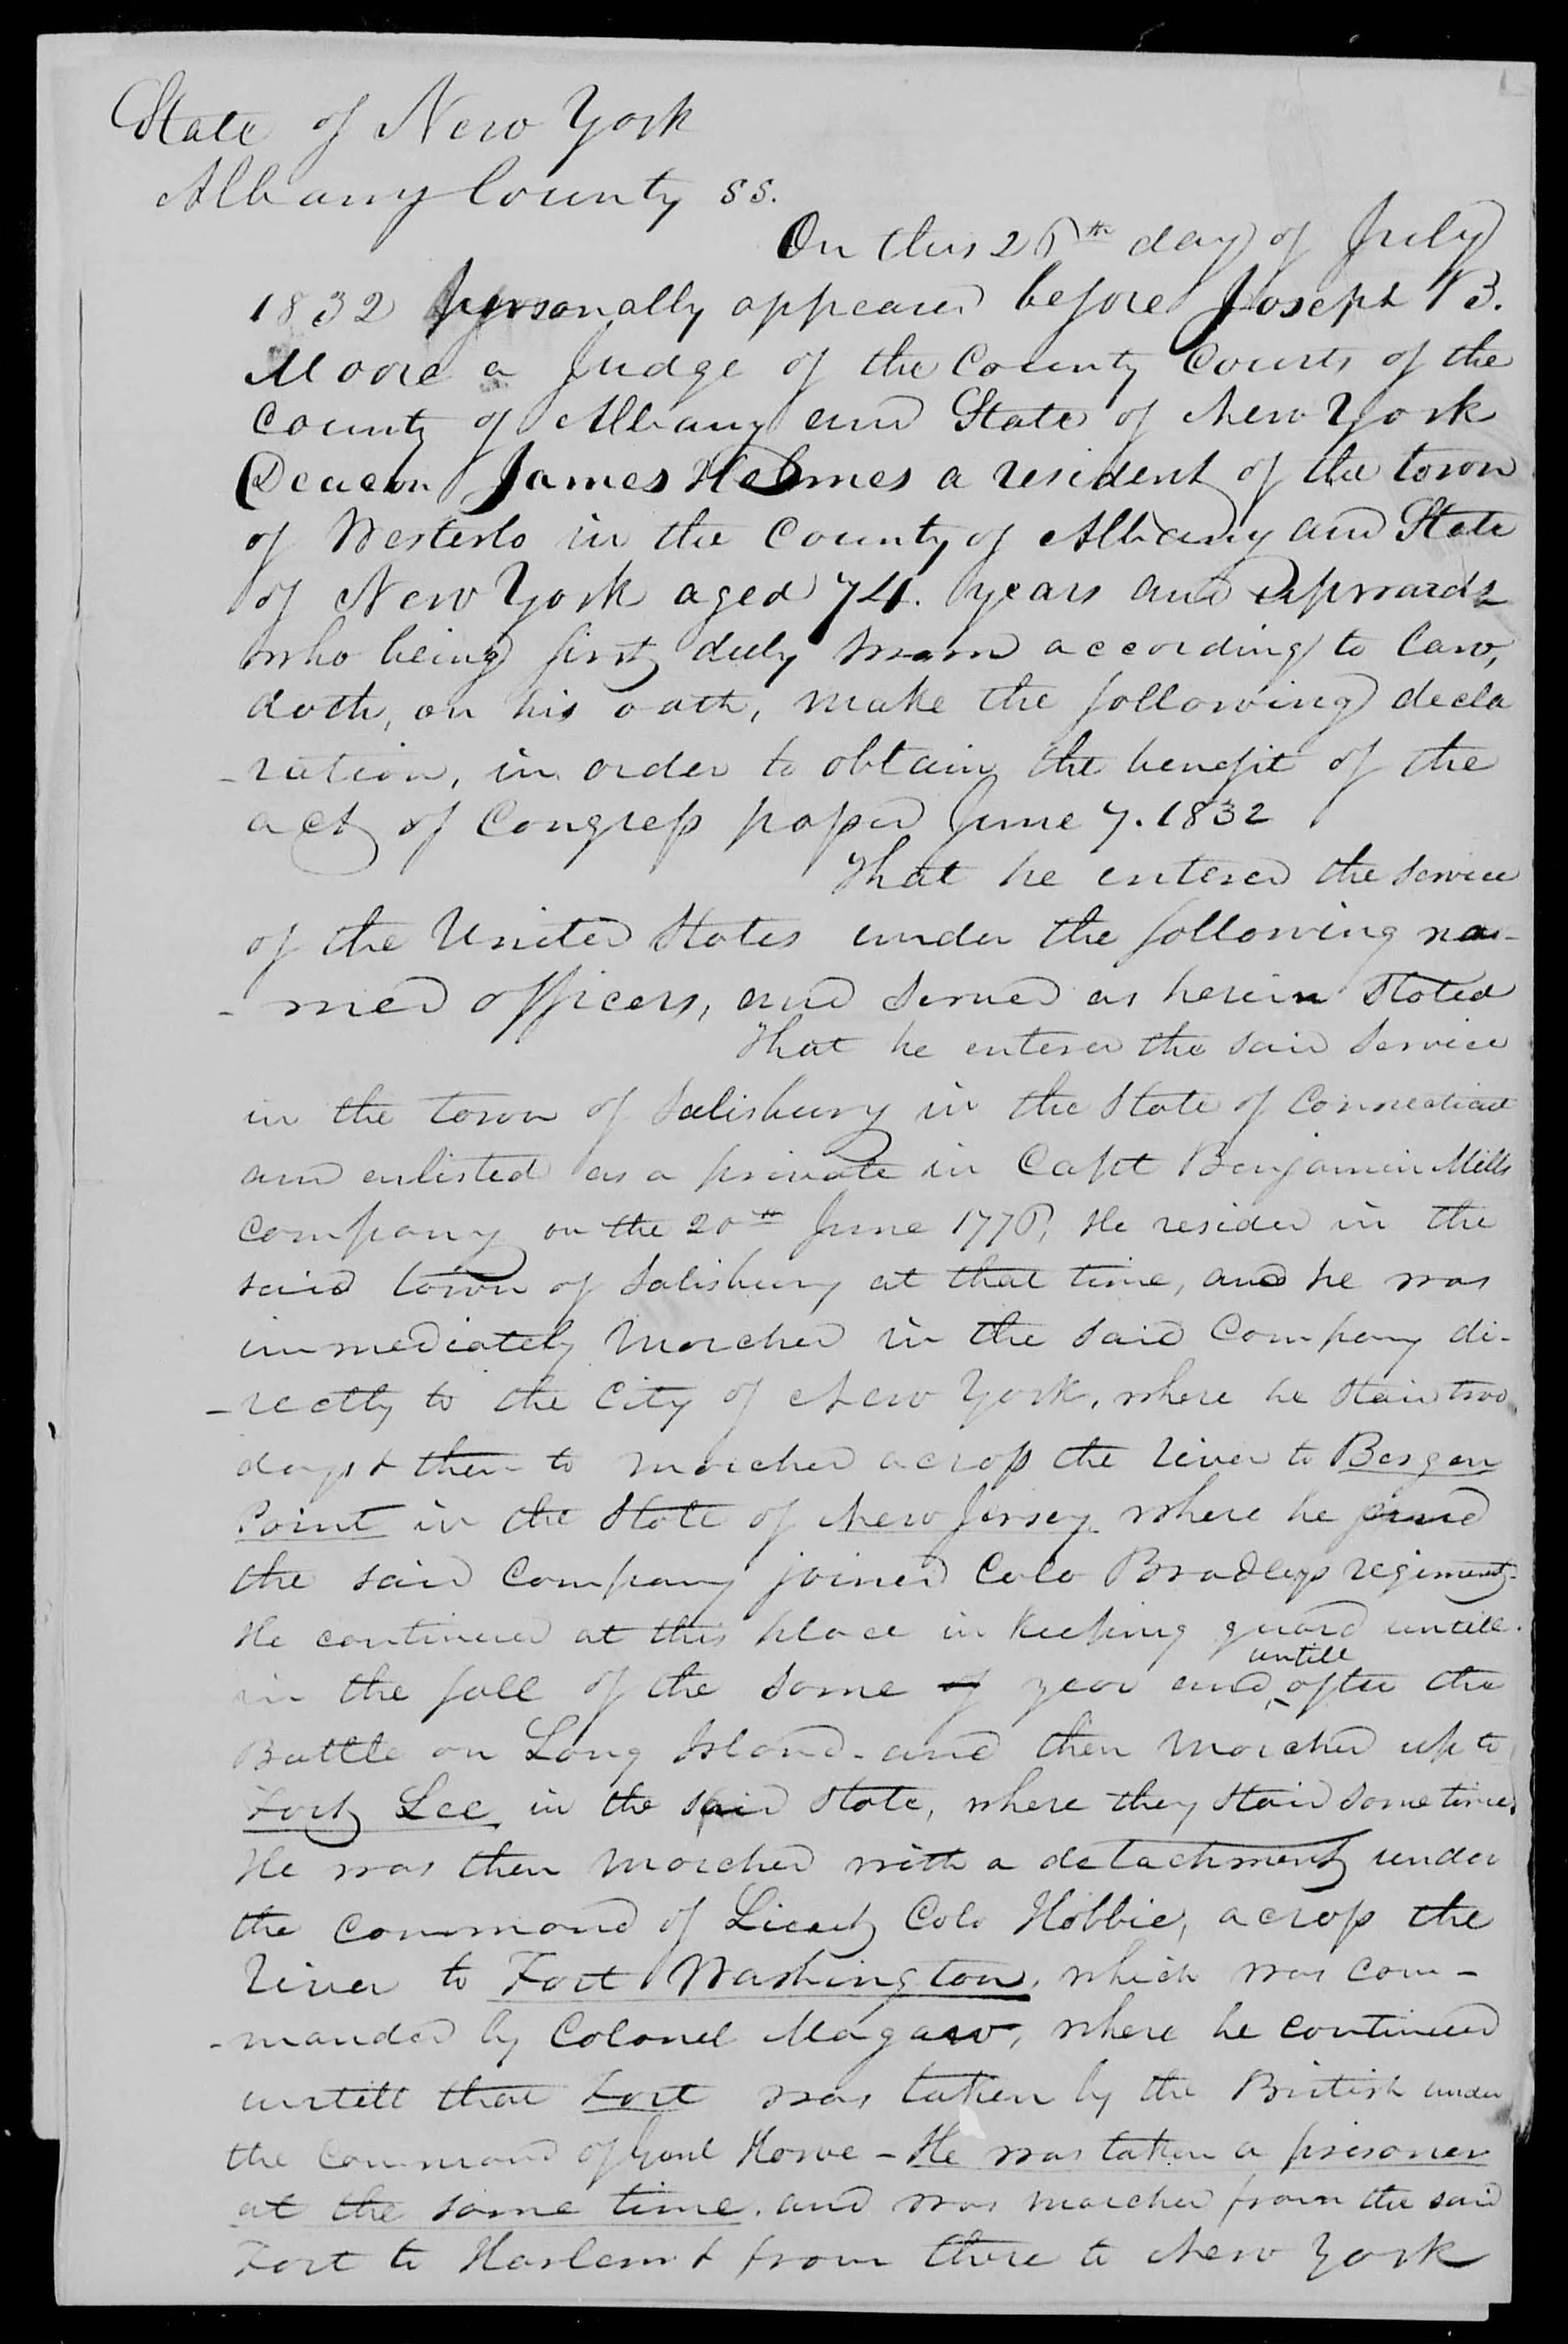 State of New York
Albany County ss.
On this 26th day of July
1832 personally appeared before Joseph B.
Moore a Judge of the County Courts of the
County of Albany and State of New York
Deacon James Holmes a resident of the town
of Westerlo in the County of Albany and State
of New York aged 74. years and upwards
who being first duly sworn according to law,
doth, on his oath, make the following decla
-ration, in order to obtain the benefit of the
act of Congress passed June 7. 1832
That he entered the service
of the United States under the following na-
-med officers, and served as herein stated
That he entered the said service
in the town of Salisbury in the State of Connecticut
and enlisted as a private in Capt Benjamin Mills
company on the 20th June 1776, He resided in the
said town of Salisbury at that time, and he was
immediately marched in the said Company di-
-rectly to the City of New York, where he staid two
days & then to marched across the river to Bergen
Point in the State of New Jersey where he
the said Company joined Colo Bradleys regiment
He continued at this place in keeping guard untill
in the fall of the same of year and untill after the
Battle on Long Island - and then marched up to
Fort Lee in the said State, where they staid sometime.
He was then marched with a detachment under
the command of Lieut Colo Hobbie, across the
river to Fort Washington, which was com-
-manded by Colonel Magaw, where he continued
untill that Fort was taken by the British under
the command of Genl Howe - He was taken a prisoner
at the same time, and was marched from the said
Fort to Harlem & from there to New York